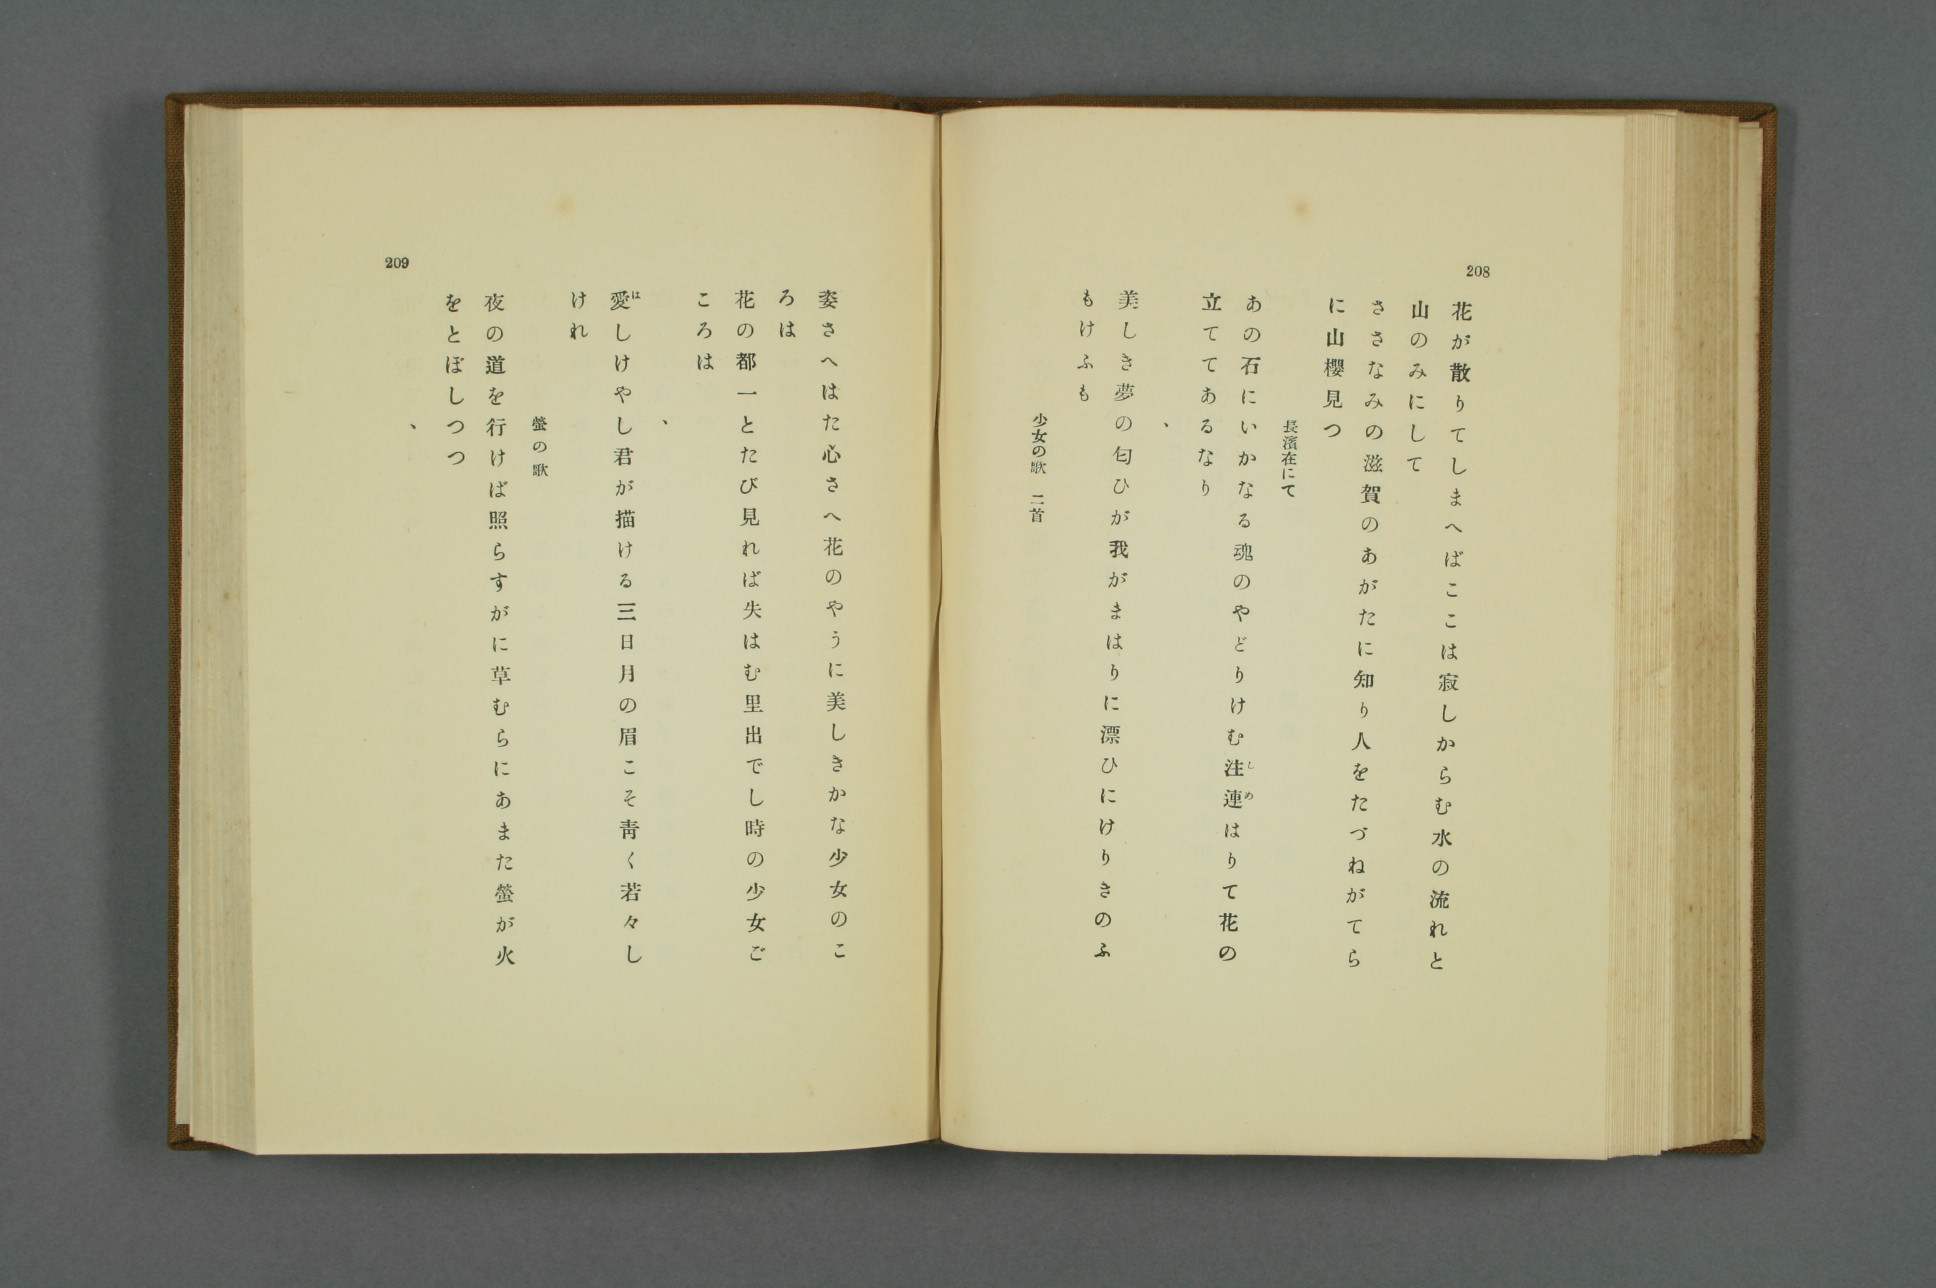 208
花が散りてしまへばここは寂しからむ水の流れと
山のみにして
ささなみの滋賀のあがたに知り人をたづねがてら
に山櫻見つ
長濱在にて
あの石にいかなる魂のやどりけむ注連はりて花の
しめ
立ててあるなり
、
美しき夢の匂ひが我がまはりに漂ひにけりきのふ
もけふも
少女の歌 二首
姿さへはた心さへ花のやうに美しきかな少女のこ
ろは
花の都一とたび見れば失はむ里出でし時の少女ご
ころは
、
愛しけやし君が描ける三日月の眉こそ靑く若々し
は
けれ
螢の歌
夜の道を行けば照らすがに草むらにあまた螢が火
をとぼしつつ
、
209